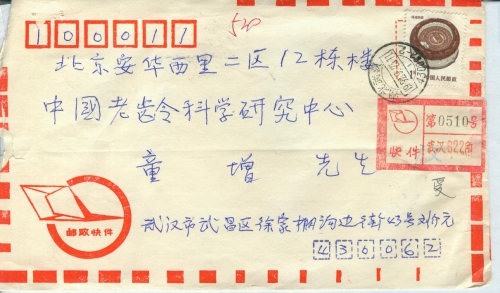 520
100011
北京安华西里二区12栋楼
中國老龄科学研究中心
童增 先生
第0510号
快件 武汉622甲
中国人民邮政
夏
邮政快件
武汉市武昌区徐家棚沟边街43号
430062